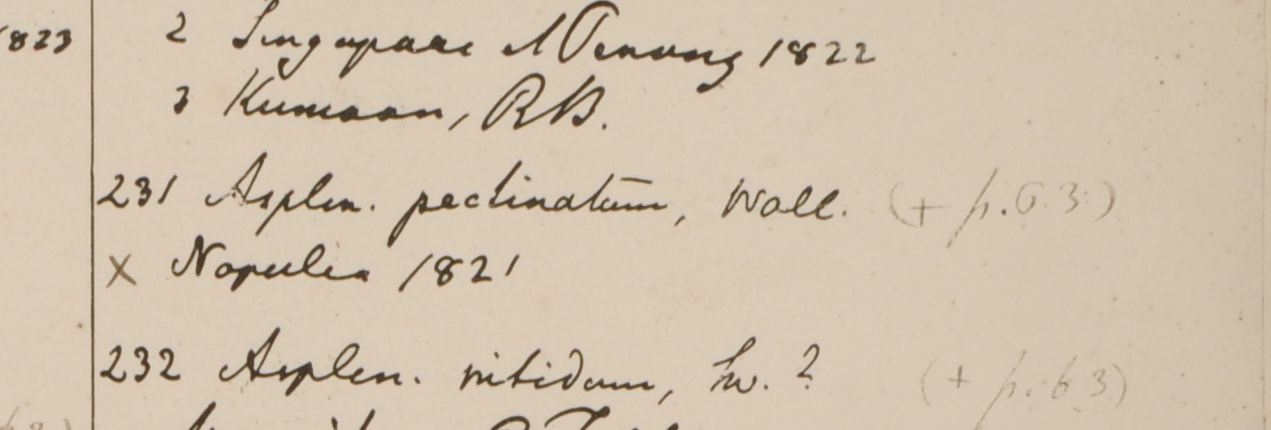 1823
2 Singapore et Penang 1822
3 Kumaon, RB.
231 Asplen. pectinatum, Wall. (+ p.63)
x Napalia 1821
232 Asplen. nitidum, Sw.? (+ p.63)